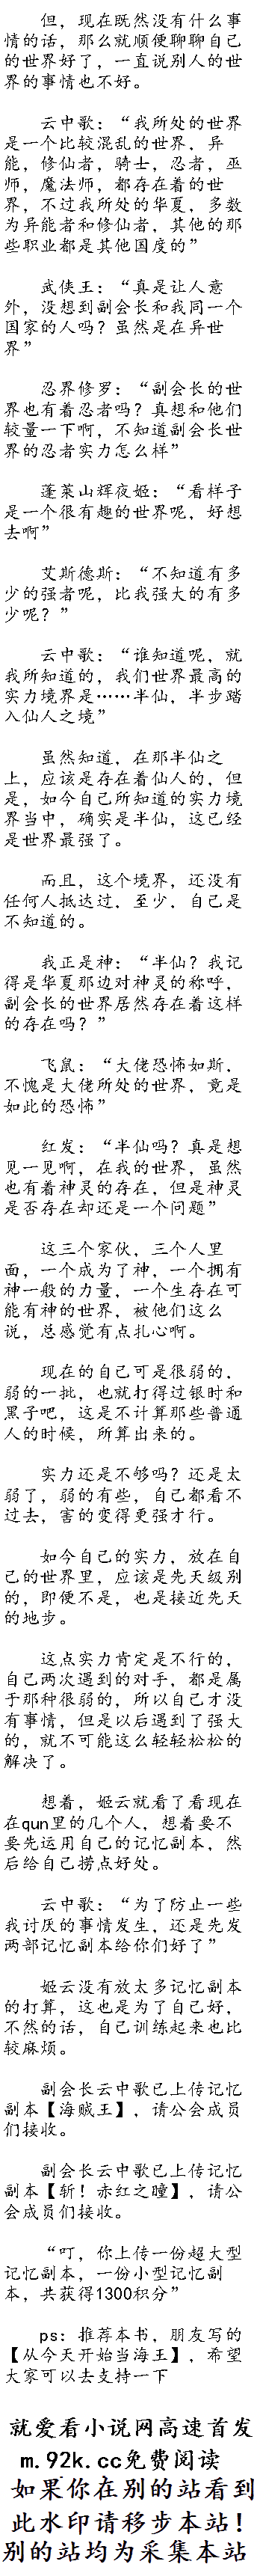 但，现在既然没有什么事
情的话，那么就顺便聊聊自己
的世界好了，一直说别人的世
界的事情也不好。
云中歌：“我所处的世界
是一个比较混乱的世界，异
能，修仙者，骑士，忍者，巫
师，魔法师，都存在着的世
界，不过我所处的华夏，多数
为异能者和修仙者，其他的那
些职业都是其他国度的”
武侠王：“真是让人意
外，没想到副会长和我同一个
国家的人吗？虽然是在异世
界”
忍界修罗：“副会长的世
界也有着忍者吗？真想和他们
较量一下啊，不知道副会长世
界的忍者实力怎么样”
蓬莱山辉夜姬：“看样子
是一个很有趣的世界呢，好想
去啊”
艾斯德斯：“不知道有多
少的强者呢，比我强大的有多
少呢？”
云中歌：“谁知道呢，就
我所知道的，我们世界最高的
实力境界是……半仙，半步踏
入仙人之境”
虽然知道，在那半仙之
上，应该是存在着仙人的，但
是，如今自己所知道的实力境
界当中，确实是半仙，这已经
是世界最强了。
而且，这个境界，还没有
任何人抵达过，至少，自己是
不知道的。
我正是神：“半仙？我记
得是华夏那边对神灵的称呼，
副会长的世界居然存在着这样
的存在吗？”
飞鼠：“大佬恐怖如斯，
不愧是大佬所处的世界，竟是
如此的恐怖”
红发：“半仙吗？真是想
见一见啊，在我的世界，虽然
也有着神灵的存在，但是神灵
是否存在却还是一个问题”
这三个家伙，三个人里
面，一个成为了神，一个拥有
神一般的力量，一个生存在可
能有神的世界，被他们这么
说，总感觉有点扎心啊。
现在的自己可是很弱的，
弱的一批，也就打得过银时和
黑子吧，这是不计算那些普通
人的时候，所算出来的。
实力还是不够吗？还是太
弱了，弱的有些，自己都看不
过去，害的变得更强才行。
如今自己的实力，放在自
己的世界里，应该是先天级别
的，即便不是，也是接近先天
的地步。
这点实力肯定是不行的，
自己两次遇到的对手，都是属
于那种很弱的，所以自己才没
有事情，但是以后遇到了强大
的，就不可能这么轻轻松松的
解决了。
想着，姬云就看了看现在
在qun里的几个人，想着要不
要先运用自己的记忆副本，然
后给自己捞点好处。
云中歌：“为了防止一些
我讨厌的事情发生，还是先发
两部记忆副本给你们好了”
姬云没有放太多记忆副本
的打算，这也是为了自己好，
不然的话，自己训练起来也比
较麻烦。
副会长云中歌已上传记忆
副本【海贼王】，请公会成员
们接收。
副会长云中歌已上传记忆
副本【斩！赤红之瞳】，请公
会成员们接收。
“叮，你上传一份超大型
记忆副本，一份小型记忆副
本，共获得1300积分”
ps：推荐本书，朋友写的
【从今天开始当海王】，希望
大家可以去支持一下
就爱看小说网高速首发
m.92k.cc免费阅读
如果你在别的站看到
此水印请移步本站！
别的站均为采集本站